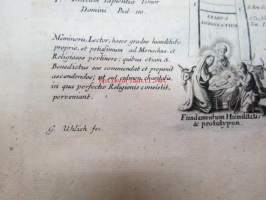 Domini Psal. 110.
Memineris Lector, hosce gradus humilitatis
proprie, et potissimum ad Monachos et
Religiosos pertinere; quibus etiam S.
Benedictus eos commendat et proponit
ascendendos; ut ad culmen charitatis
in qua perfectio Religionis consistit,
perveniant.
G. Uhlich fec.
Fundamentum Humilitatis
& prototypon.